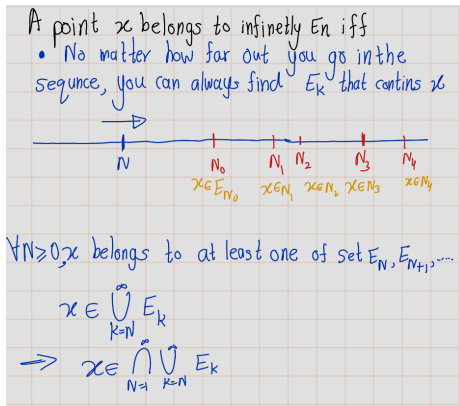 A point x belongs to infinetly En iff
• No matter how far out you go in the
sequnce, you can always find E_K that contins x
N N_0 N_1 N_2 N_3 N_4
x∈E_{N_0} x∈N_1 x∈N_2 x∈N_3 x∈N_4
∀N≥0, x belongs to at least one of set E_N, E_{N+1}, ....
x ∈ ⋃_{k=N}^∞ E_k
⇒ x∈ ⋂_{N=1}^∞ ⋃_{k=N}^∞ E_k